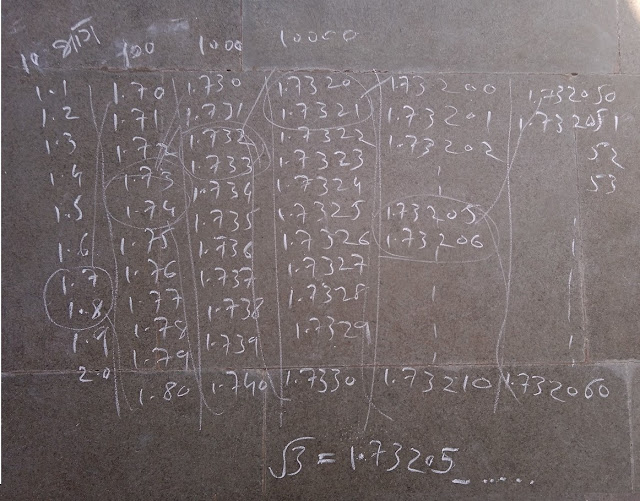 10 ભાગ 100 1000 10000
1.1 1.70 1.730 1.7320 1.73200 1.732050
1.2 1.71 1.731 1.7321 1.73201 1.732051
1.3 1.72 1.732 1.7322 1.73202 52
1.4 1.73 1.733 1.7323 53
1.5 1.74 1.734 1.7324
1.6 1.75 1.735 1.7325 1.73205
1.7 1.76 1.736 1.7326 1.73206
1.8 1.77 1.737 1.7327
1.9 1.78 1.738 1.7328
2.0 1.79 1.739 1.7329
1.80 1.740 1.7330 1.73210 1.732060
√3 = 1.73205_ .....